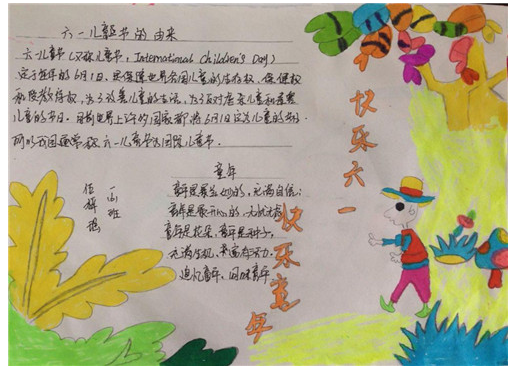 六一儿童节的由来
六一儿童节(又称儿童节,International Children's Day)
定于每年的6月1日,为保障世界各国儿童的生存权、保健权
和受教育权,为了改善儿童的生活,为了反对虐杀儿童和毒害
儿童的节日。目前世界上许多国家都将6月1日定为儿童的节日。
所以我国通常称六一儿童节为国际儿童节。
快乐六一
童年
童年是
童年是最开心的,无忧无虑
童年是花朵,童年是种子,
充满生机,
追忆童年,回味童年
快乐童年